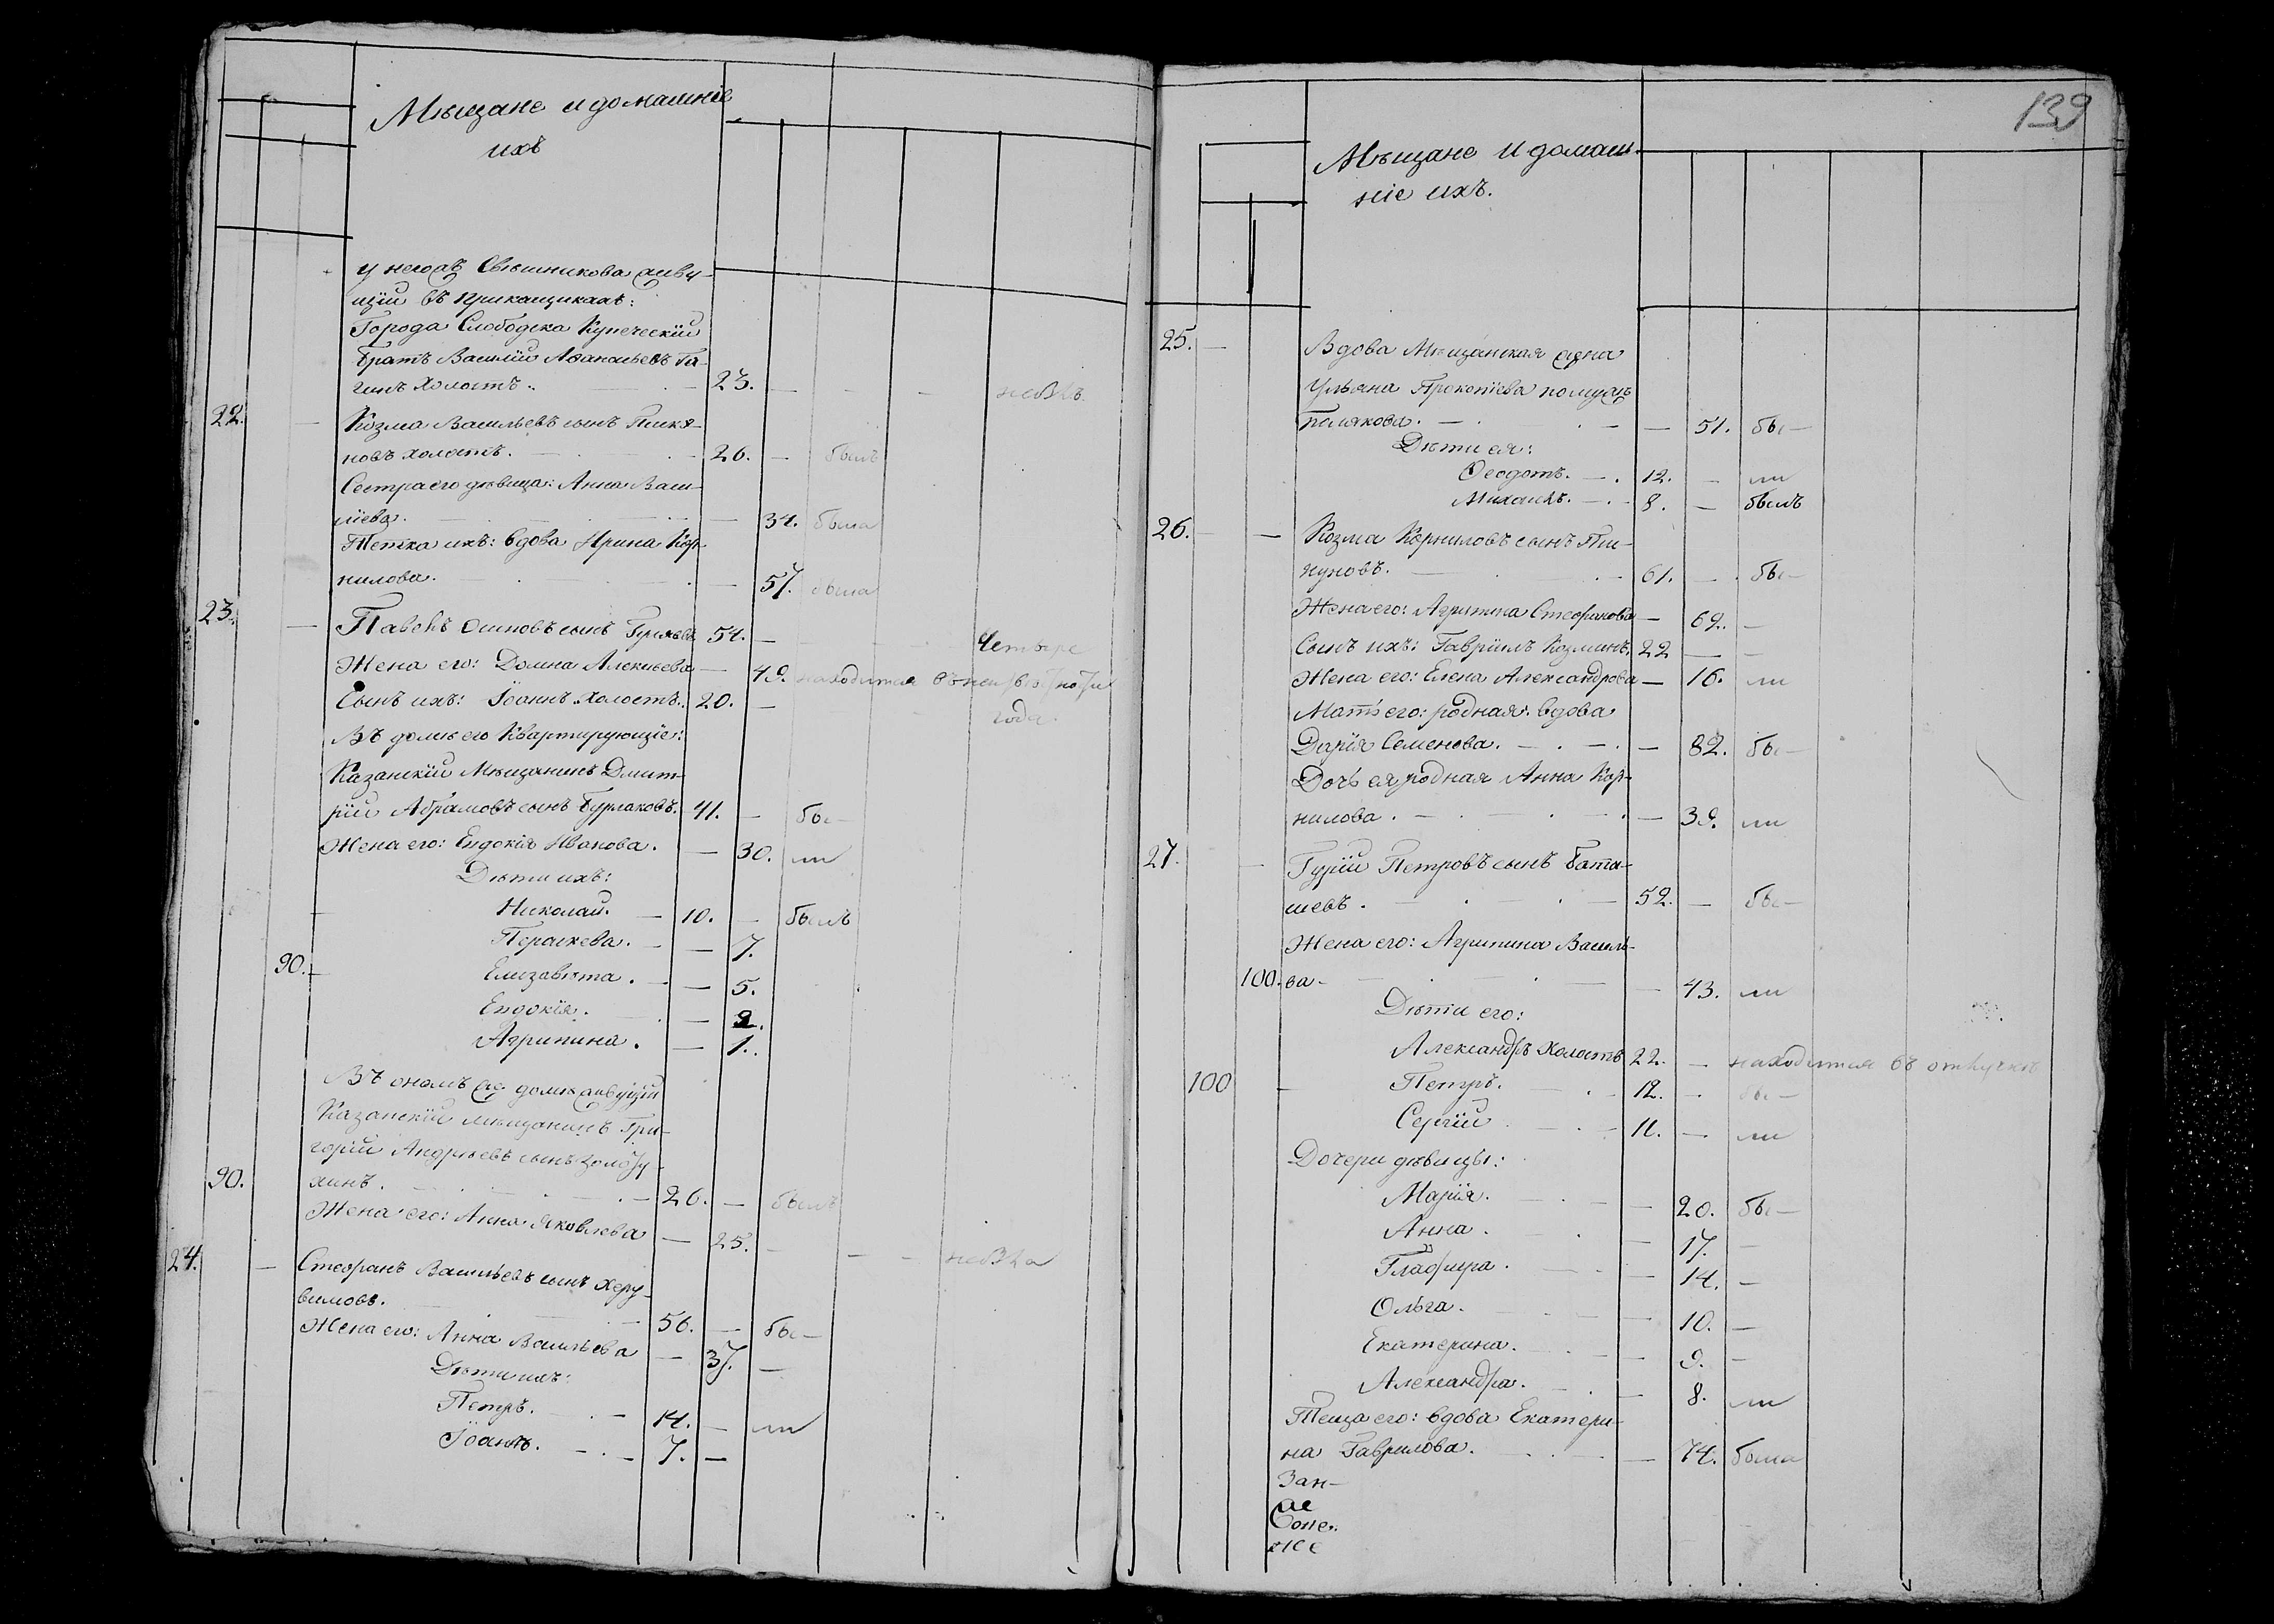 Мѣщане и домашніе
ихъ
у него жъ Свѣшникова живу-
щій въ прикащикахъ:
Города Слободска Купеческій
братъ Василій Аѳанасьевъ Га-
гинъ холостъ. 23. — — — небылъ
22. — Козма Васильевъ сынъ
новъ холостъ. — 26. — былъ
Сестра его дѣвица: Анна Васи-
ліева. — 34. была
Тетка ихъ: вдова Ирина Кор-
нилова. — 57. была
23. — Павелъ Осиповъ сынъ 54. — Четыре
Жена его: Домна Алексѣева — 49. находится въ
Сынъ ихъ: Іоаннъ. холостъ. 20. — года.
Въ домѣ его Квартирующіе:
Казанскій Мѣщанинъ Дмит-
рій Абрамовъ сынъ Бурлаковъ. 41. — бы—
Жена его: Евдокія Иванова. — 30. ли
Дѣти ихъ:
Николай. — 10. — былъ
Параскева. — 7.
90. Елизавѣта. — 5.
Евдокія. — 2.
Агрипина. — 1.
Въ ономъ же домѣ живущій
Казанскій мѣщанинъ Гри-
горій Андрѣевъ сынъ
90. хинъ. — 26. — былъ
Жена его: Анна Яковлева — 25. — — — небыла
24. — Стефанъ Васильевъ сынъ Херу-
вимовъ. 56. — бы—
Жена его: Анна Васильева — 37. —
Дѣти ихъ:
Петръ. — 14. — ли
Іоаннъ. — 7. —
139
Мѣщане и домаш-
ніе ихъ.
25. — Вдова Мѣщанская жена
Ульяна Прокопіева по мужѣ
Полякова. — 51. бы—
Дѣти ея:
Ѳеодотъ. — 12. — ли
Михаилъ. — 8. — былъ
26. — Козма Корниловъ сынъ Пи-
куновъ. — 61. — бы—
Жена его: Агрипина Стефанова — 62. —
Сынъ ихъ: Гавріилъ Козминъ. 22 — —
Жена его: Елена Александрова — 16. ли
Мать его: родная: вдова
Дарія Семенова. — 82. бы—
Дочь ея родная Анна Кор-
нилова. — 39. ли
27. — Гурій Петровъ сынъ Бата-
шевъ. — 52. — бы—
Жена его: Агрипина Василь-
100. ва — 43. ли
Дѣти его:
Александръ холостъ 22. — находится въ отлучкѣ
100 — Петръ. — 12. — бы—
Сергій — 11. — ли
Дочери дѣвицы:
Марія. — 20. бы—
Анна. — 17. —
Глафира. — 14. —
Ольга. — 10. —
Екатерина. — 9. —
Александра. — 8. ли
Теща его: вдова Екатери-
на Гаврилова. — 74. была
Зан—